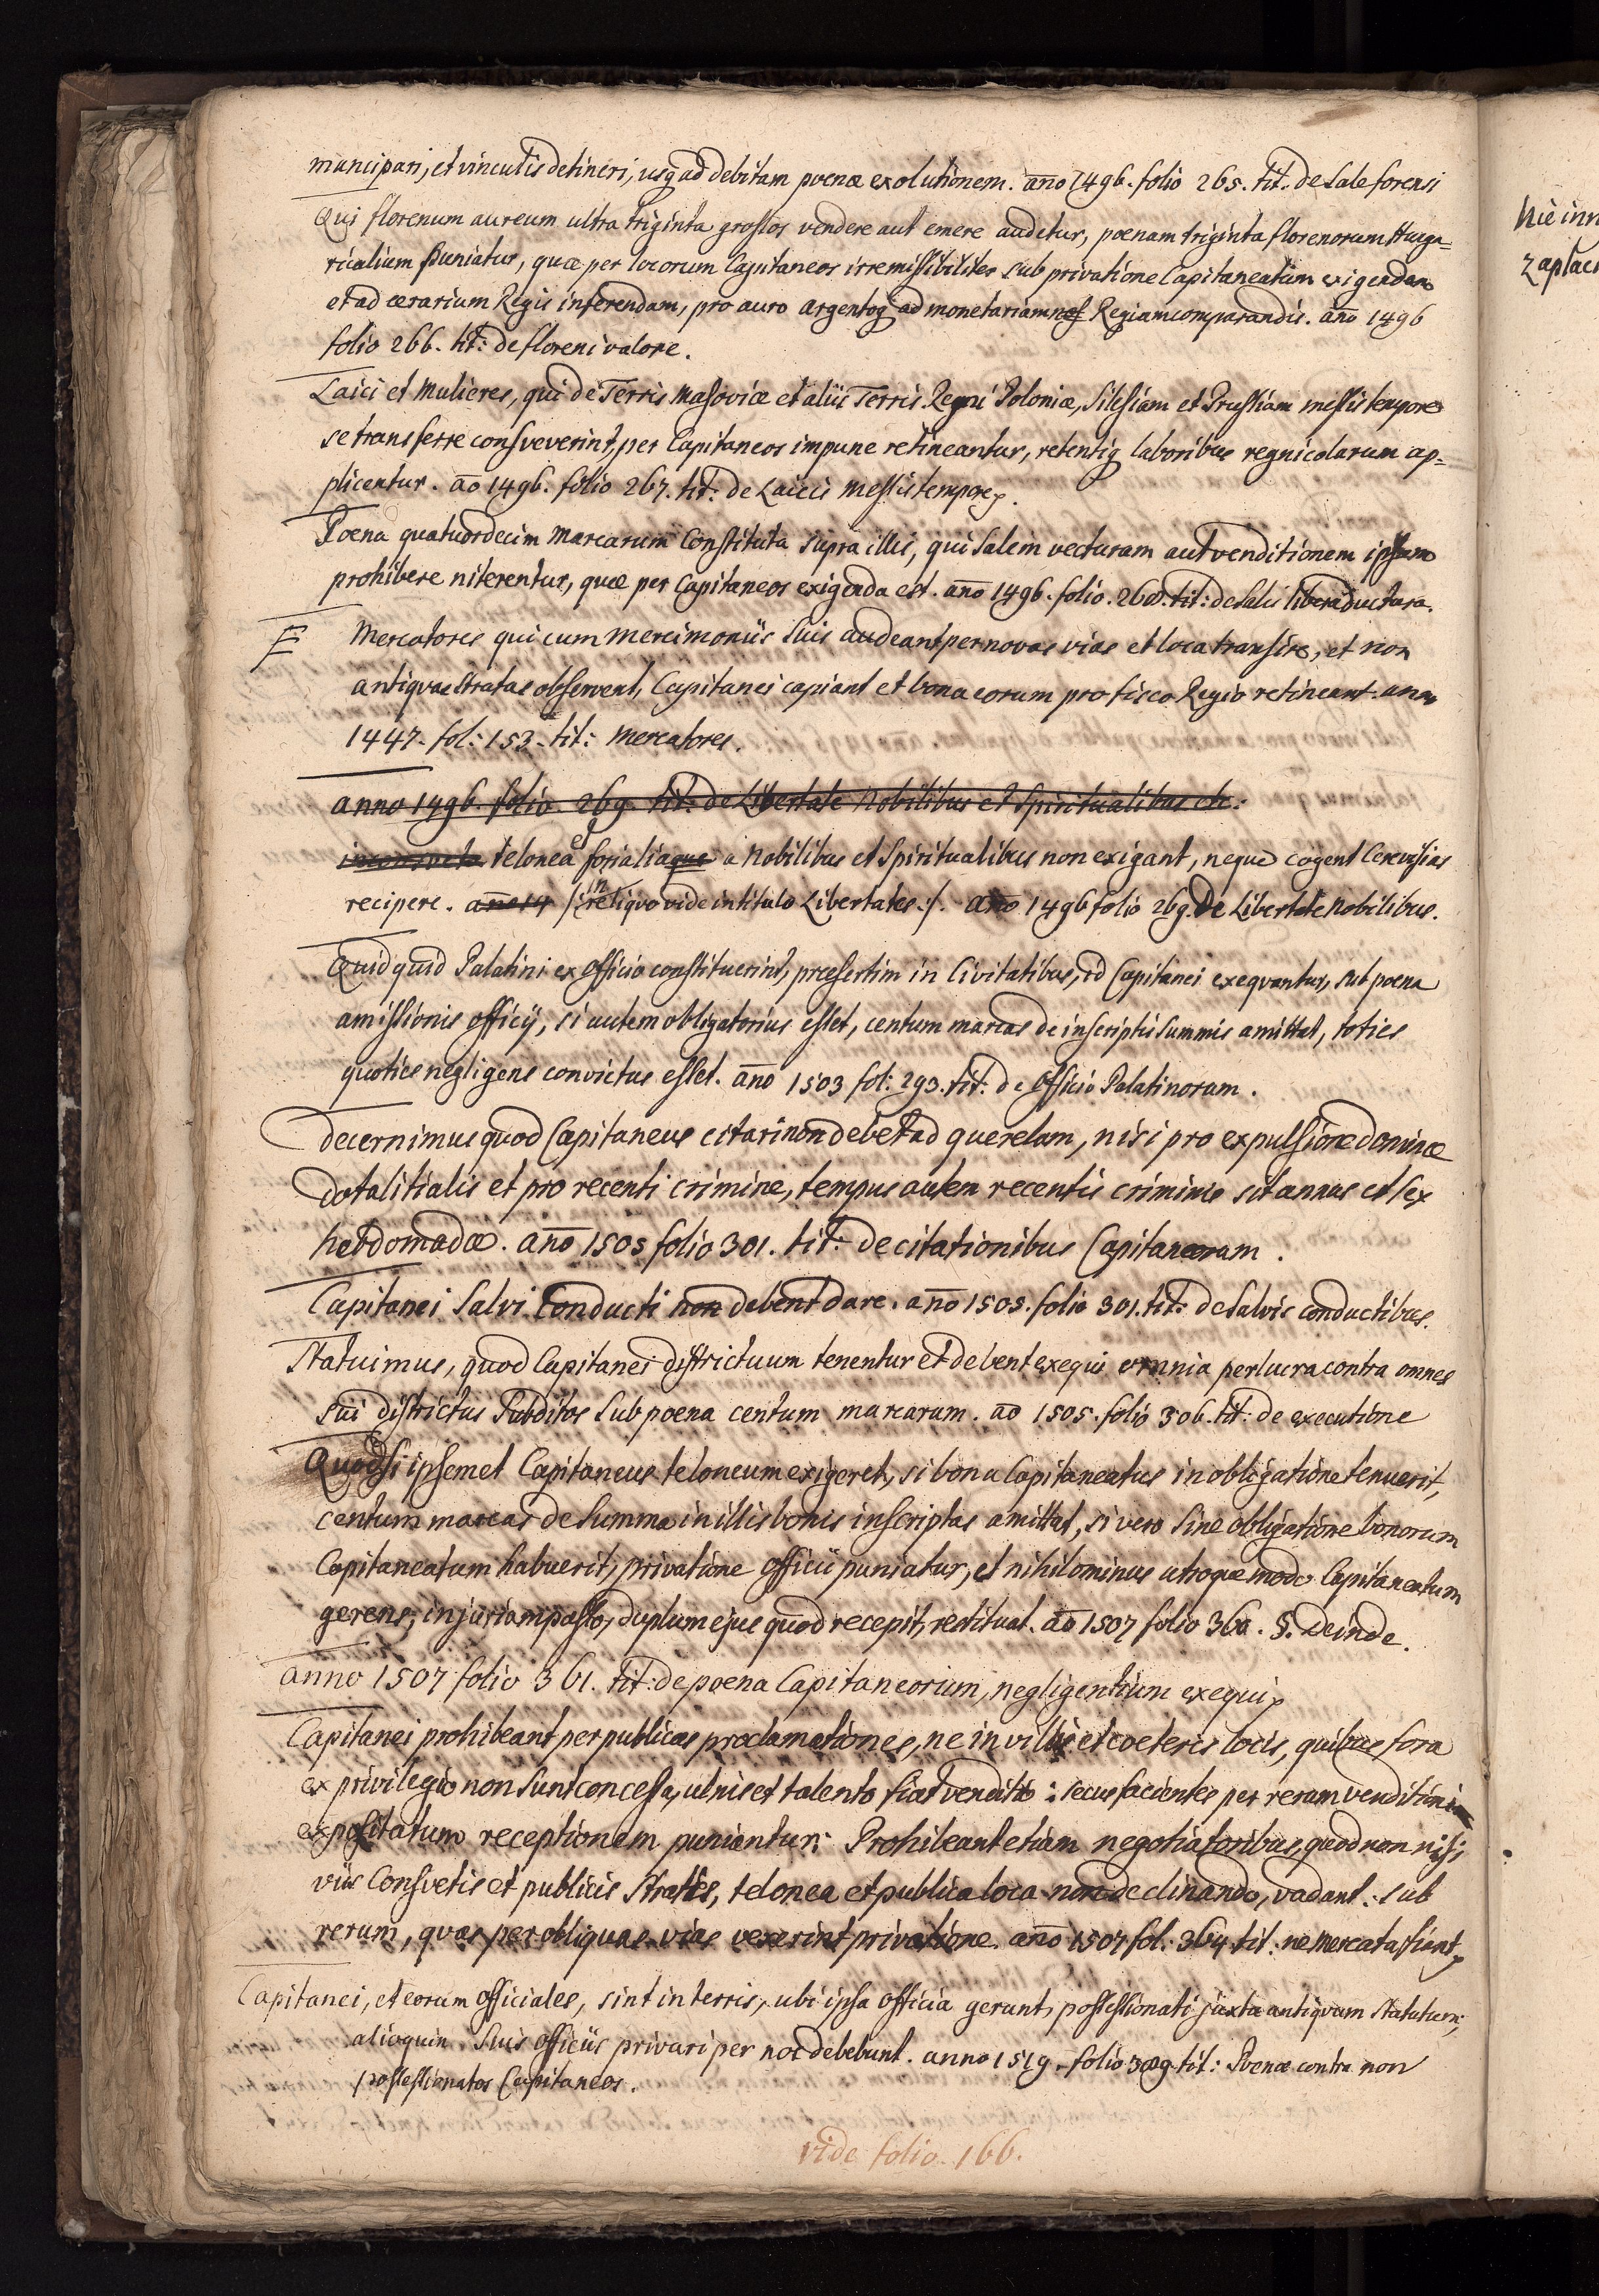 mancipari, et vinculis detineri, usq ad debitam poenæ exolutionem. año 1496. folio 265. tit. de Sale forensi
Qui florenum aureum ultra triginta grossos vendere aut emere audetur, poenam triginta florenorum Hunga=
ricalium puniatur, quæ per locorum Capitaneos irremissibiliter sub privatione Capitaneatum exigendam
et ad ærarium Regis inferendam, pro auro argentoq ad monetariam Regiam comparandis. año 1496
folio 266. tit: de floreni valore.
Laici et Mulieres, qui de Terris Masoviæ et aliis Terris Regni Poloniæ, Silesiam et Prussiam messis tempore
se transferre consveverint, per Capitaneos impune retineantur, retentiq laboribus regnicolarum ap=
plicentur. ao 1496. folio 267. tit: de Laicis messis tempore.
Poena quatuordecim Marcarum Constituta supra illis, qui Salem vecturam aut venditionem ipsam
prohibere niterentur, quæ per Capitaneos exigenda est. año 1496. folio. 268. tit: de Salis libera ductura.
E Mercatores qui cum mercimoniis suis audeant per novas vias et loca transire, et non
antiquas stratas observent, Capitanei capiant et bona eorum pro fisco Regio retineant. anno
1447. fol: 153. tit: Mercatores.
anno 1496. folio 269. tit: de Libertate Nobilibus et Spiritualibus etc:
inconsveta telonea et forialiaque a Nobilibus et Spiritualibus non exigant, neque cogent Cerevisias
recipere. año 14 /: in reliquo vide in titulo Libertates :/. Año 1496 folio 269. De Libertate Nobilibus.
Quidquid Palatini ex officio constituerint, præsertim in Civitatibus, id Capitanei exeqvantur, sub poena
amissionis officij, si autem obligatorius esset, centum marcas de inscriptis summis amittat, toties
quoties negligens convictus esset. año 1503 fol: 293. tit: de Officio Palatinorum.
Decernimus quod Capitaneus citari non debet ad querelam, nisi pro expulsione dominæ
dotalitialis et pro recenti crimine, tempus autem recentis criminis sit annus et sex
hebdomadæ. año 1505 folio 301. tit: de citationibus Capitaneorum.
Capitanei Salvi Conducti non debent dare. año 1505. folio 301. tit: de Salvis conductibus.
Statuimus, quod Capitanei districtuum tenentur et debent exequi omnia perlucra contra omnes
sui districtus Subditos sub poena centum marcarum. ao 1505. folio 306. tit: de executione
Quodsi ipsemet Capitaneus teloneum exigeret, si bona Capitaneatus in obligatione tenuerit,
centum marcas de Summa in illis bonis inscriptas amittat, si vero sine obligatione bonorum
Capitaneatum habuerit, privatione officii puniatur, et nihilominus utroque modo Capitaneatum
gerens, injuriam passo, duplum ejus quod recepit, restituat. ao 1507 folio 360. §. Deinde.
anno 1507 folio 361. tit: de poena Capitaneorium, negligentium exequi
Capitanei prohibeant per publicas proclamationes, ne in villis et coeteris locis, quibus fora
ex privilegio non sunt concessa, ulnis et talento fiat venditio: secus facientes per rerum venditioni
expositatum receptionem puniantur: Prohibeant etiam negotiatoribus, quod non nisi
viis Consvetis et publicis stratis, telonea et publica loca non declinando, vadant. sub
rerum, quas per obliquas vias vexerint privatione. año 1507 fol: 364 tit: ne Mercata fiant
Capitanei, et eorum officiales, sint in terris, ubi ipsa officia gerunt, possessionati juxta antiqvum statutum,
alioquin suis officiis privari per nos debebunt. anno 1519. folio 389. tit: Poenæ contra non
possessionatos Capitaneos.
vide folio. 166.
Nie inn
zaplac